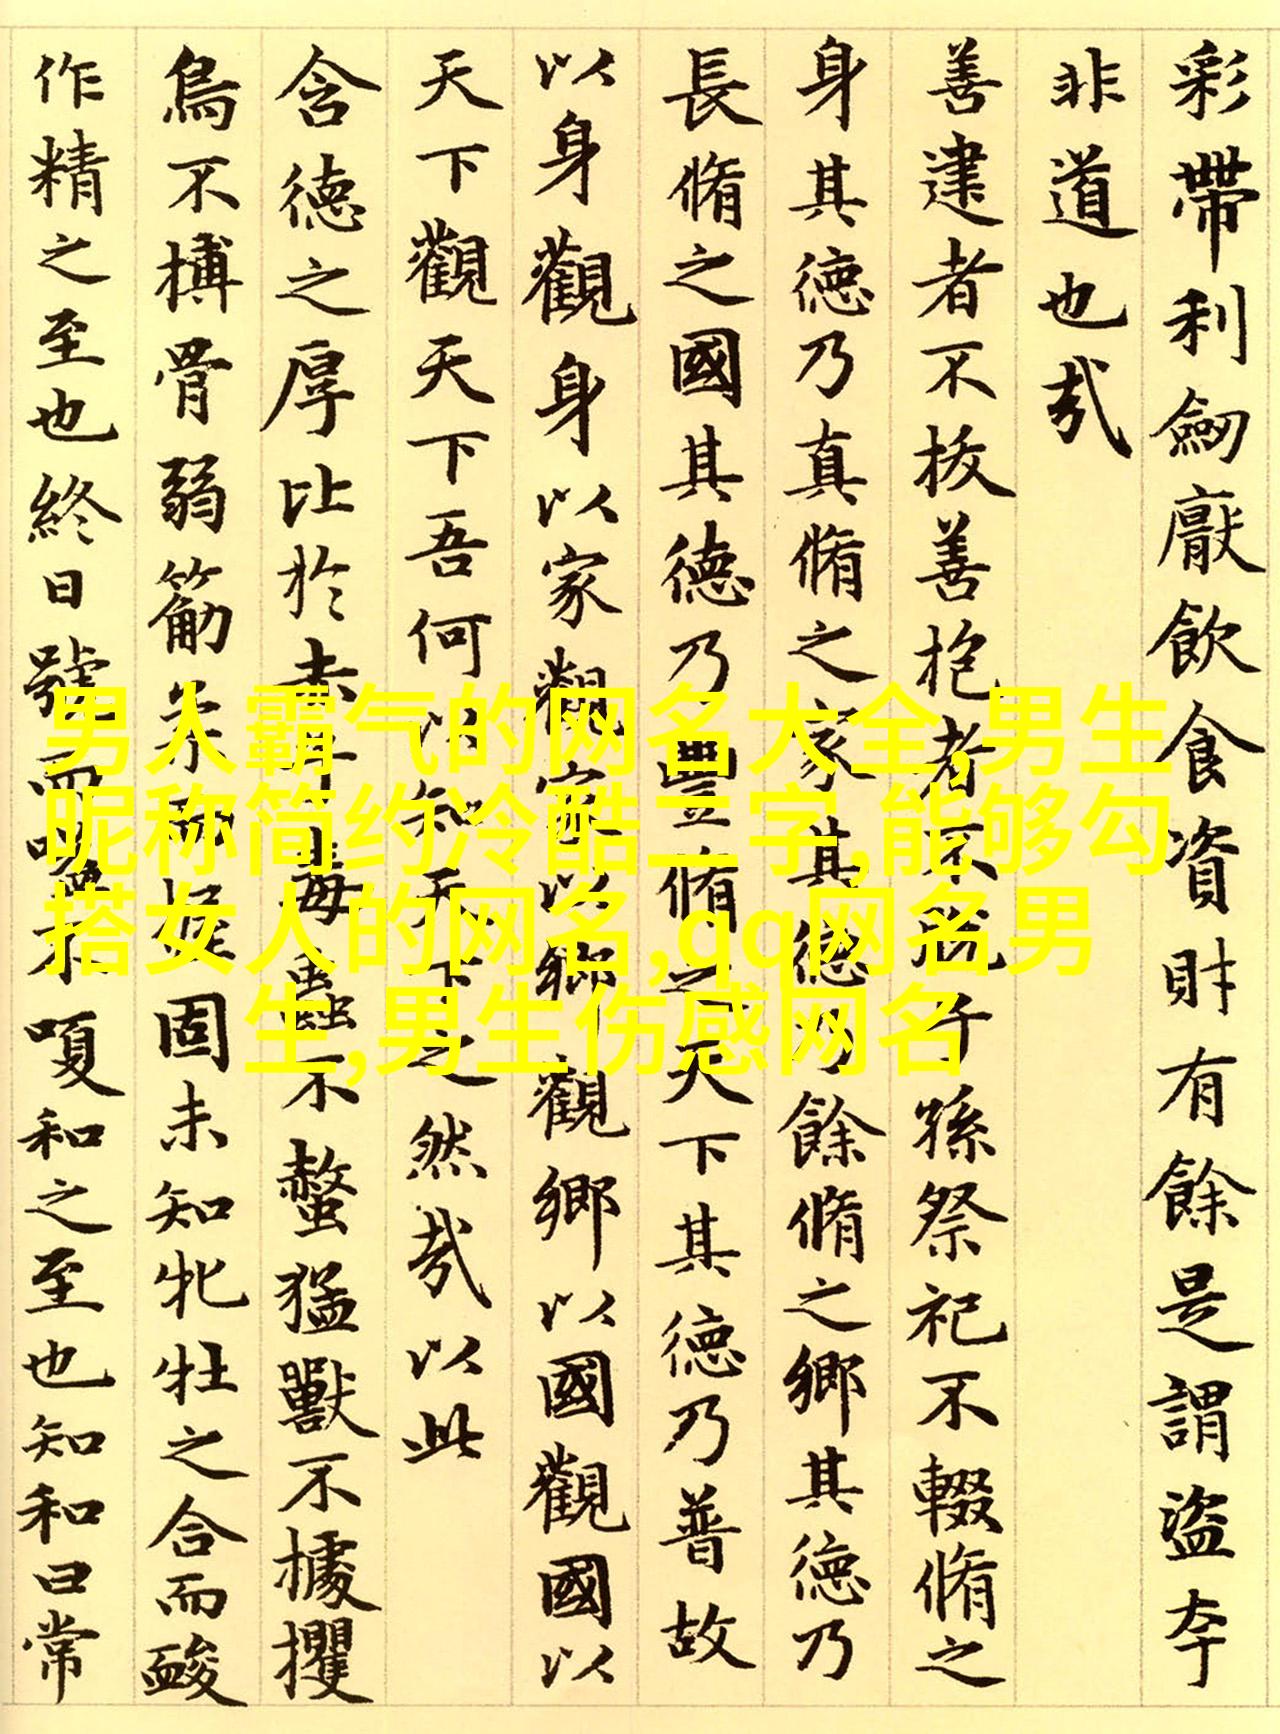 彩帶利劒厭飲食資財有餘是謂盜夸
非道也哉
善建者不拔善抱者不脫子孫祭祀不輟脩之
身其德乃真脩之家其德乃餘脩之鄉其德乃
長脩之國其德乃豐脩之天下其德乃普故
以身觀身以家觀家以鄉觀鄉以國觀國以
天下觀天下吾何以知天下之然哉以此
含德之厚比於赤子毒蟲不螫猛獸不據攫
鳥不搏骨弱筋柔而握固未知牝牡之合而䬷
作精之至也終日號而嗌不嗄和之至也知和曰常
男人霸气的网名大全,男生
昵称简约冷酷二字,能够勾
搭女人的网名,qq网名男
生,男生伤感网名